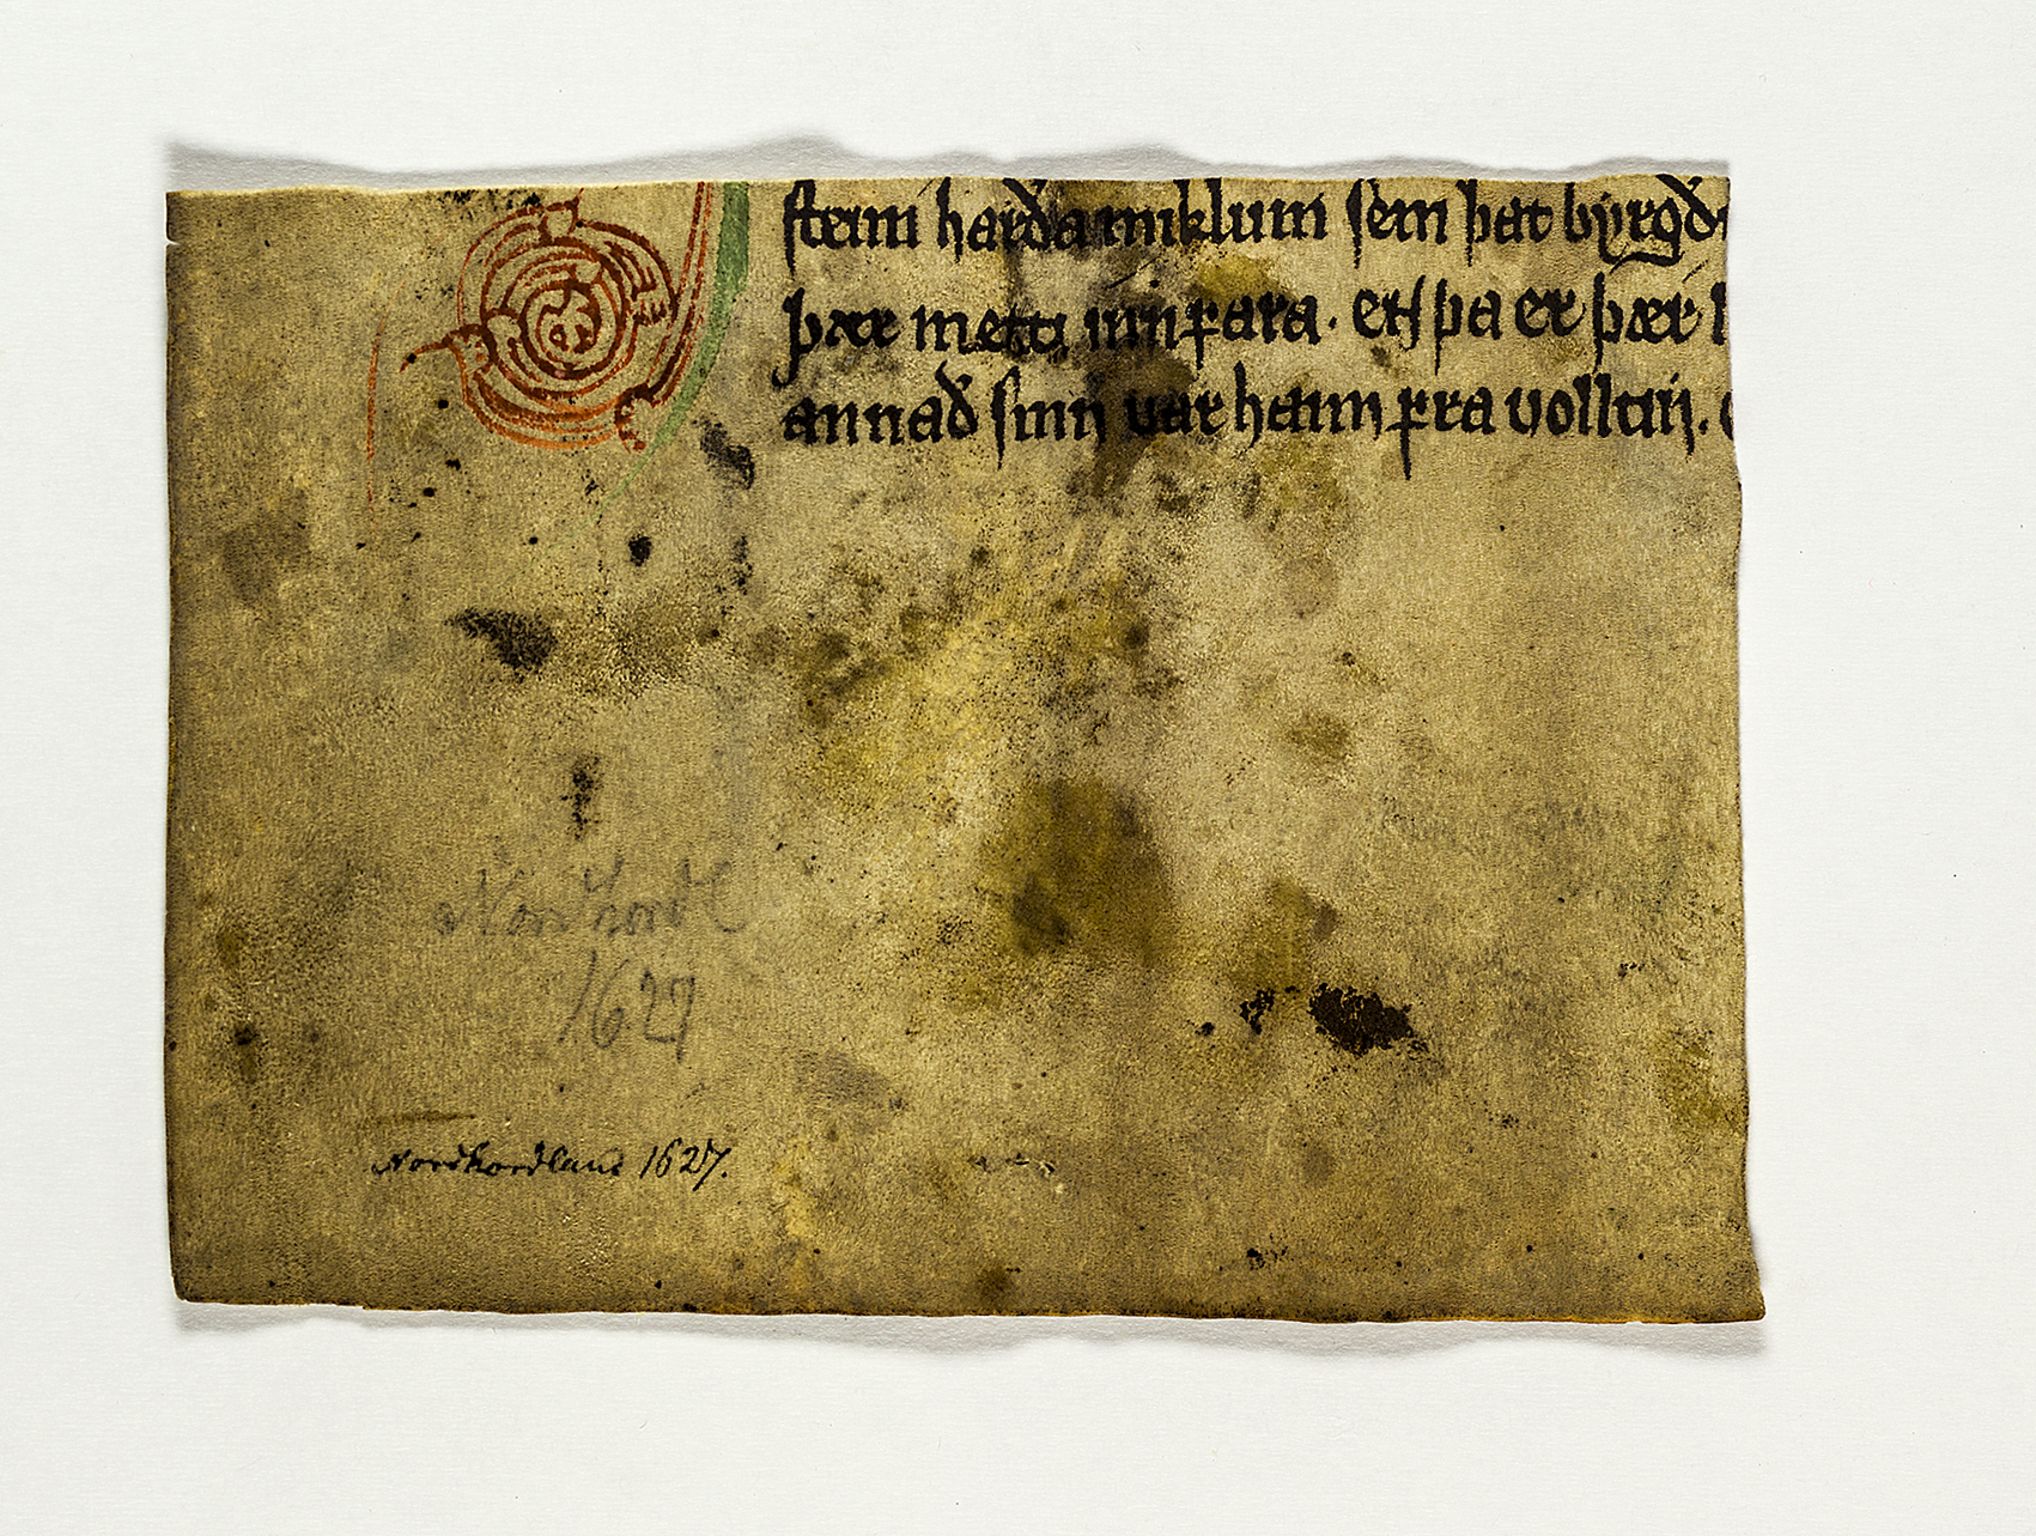 stein harða miklum sem þat byrgði
þær mætti inn fara. en þa er þær
annað sinn var hann fra volltin.
Nordhordl
1627
Nordhordland 1627.